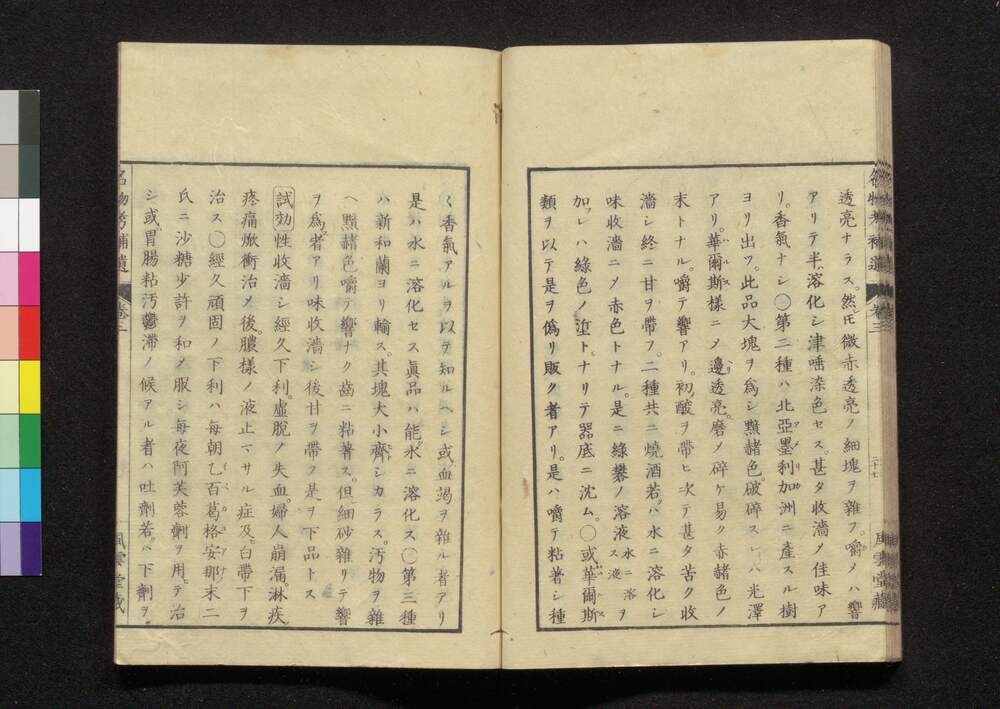 透亮ナラス。然𪜈微赤透亮ノ細塊ヲ雜フ。嚼メハ響
アリテ半溶化シ津唾染色セス。甚タ收濇メ佳味ア
リ。香氣ナシ○第二種ハ北亞墨利加洲ニ產スル樹
ヨリ出フ。此品大塊ヲ爲シ黯赭色。破碎スレハ光澤
アリ。華爾斯樣ニメ邊透亮。磨メ碎ケ易ク赤赭色ノ
末トナル。嚼テ響アリ。初酸ヲ帶ヒ次テ甚タ苦ク收
濇シ終ニ甘ヲ帶フ。二種共ニ燒酒若ハ水ニ溶化シ
味收濇ニメ赤色トナル。是ニ綠礬ノ溶液水ニ溶ス液ヲ
加レハ綠色ノ埿トナリテ器底ニ沈ム。○或華爾斯
類ヲ以テ是ヲ僞リ販ク者アリ。是ハ嚼テ粘著シ種
名物考補遺 卷三
二十七
風雲堂藏
々香氣アルヲ以テ知ルヘシ或血竭ヲ雜ル者アリ
是ハ水ニ溶化セス眞品ハ能水ニ溶化ス○第三種
ハ新和蘭ヨリ輸ス。其塊大小齊シカラス。汚物ヲ雜
ヘ黯赭色嚼テ響ナク齒ニ粘著ス。但細砂雜リテ響
ヲ爲者アリ味收濇シ後甘ヲ帶フ是ヲ下品トス
試効 性收濇シ經久下利。虛脫ノ失血。婦人崩漏。淋疾
疼痛焮衝治メ後。膿樣ノ液止マサル症及白帶下ヲ
治ス○經久頑固ノ下利ハ每朝乙百葛格安那末二
氏ニ沙糖少許ヲ和メ服シ每夜阿芙蓉劑ヲ用テ治
シ或胃腸粘汚鬱滯ノ候アル者ハ吐劑若ハ下劑ヲ
名物考補遺 卷三
風雲堂藏